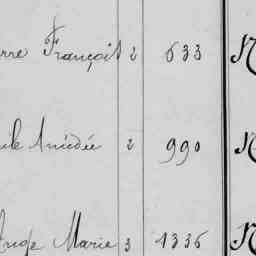 rre François 2 633 N
ile Amédée 2 990 N
Ange Marie 3 1336 N